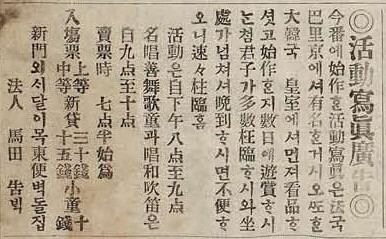 ◎活動寫眞廣告◎
今番에始作ᄒᆞᆫ活動寫眞은法国
巴里京에셔有名ᄒᆞᆫ거시오ᄯᅩᄒᆞᆫ
大韓国 皇室에셔먼져看品ᄒᆞ
셧고始作ᄒᆞᆫ지數日에遊賞ᄒᆞ시
ᄂᆞᆫ쳠君子가多數枉臨ᄒᆞ시와坐
處가넘쳐셔晩到ᄒᆞ시면不便ᄒᆞ
오니速々枉臨ᄒᆞᆷ
活動은自下午八点至九点
名唱善舞歌童과唱和吹笛은
自九点至十点
賣票時 七点半始爲
入塲票 上等 中等 新貸 三十錢 十五錢 小童 十錢
新門외시달이목東便벽돌집
法人 馬田 告ᄇᆡᆨ